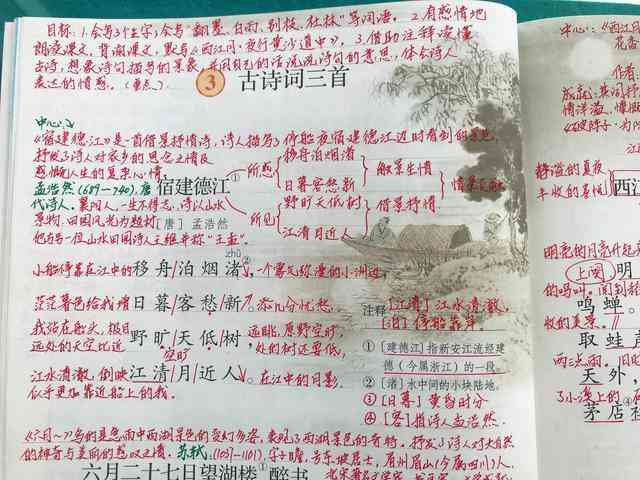 目标:1.会写3个生字;会写"翻墨、白雨、别枝、杜林"等词语。2.有感情地
朗读课文,背诵课文,默写《西江月·夜行黄沙道中》。3.借助注释读懂
古诗,想象诗句描写的景象,并用自己的话说说诗句的意思,体会诗人
表达的情感。(重点)
3 古诗词三首
中心:
《宿建德江》是一首借景抒情诗,诗人描写了停船夜宿建德江边时看到的景色,
抒发了诗人对家乡的思念之情及
感慨人生的复杂心情。
孟浩然(689-740),唐
代诗人。襄阳人,一生不得志,诗以山水
景物、田园风光为题材
他与另一位山水田园诗人王维并称"王孟"。
宿建德江①
[唐] 孟浩然
所感
移舟泊烟渚
日暮客愁新
触景生情
所见
野旷天低树
江清月近人
借景抒情
情景交融
zhǔ
小船停靠在江中的移舟/泊烟渚②,一个雾气弥漫的小洲边,
茫茫暮色给我增日暮/客愁/新。添几分忧愁。
我站在船头,极目
远处的天空比近
野旷/天低/树,
空旷
远眺,原野空旷,
处的树还要低,
江水清澈,倒映
江清/月近人。在江中的月影
似乎更加靠近船上的我。
注释
[江清]江水清澈。
[泊]停船靠岸
①[建德江]指新安江流经建
德(今属浙江)的一段。
②[渚]水中间的小块陆地。
③[日暮]黄昏时分
④[客]指诗人孟浩然。
《六月~》写的是急雨中西湖景色的变幻多姿,表现了西湖景色的奇特。抒发了诗人对大自然
的神奇与美丽的感叹之情。
苏轼:(1037-1101),字子瞻,号东坡居士,眉州眉山(今属四川)人,
六月二十七日望湖楼①醉书
中心:《西江
作者
静谧的夏夜
丰收的喜悦
西江
明亮的月亮升起
上阕
明
鸣蝉。
取蛙声
天外,
茅店社